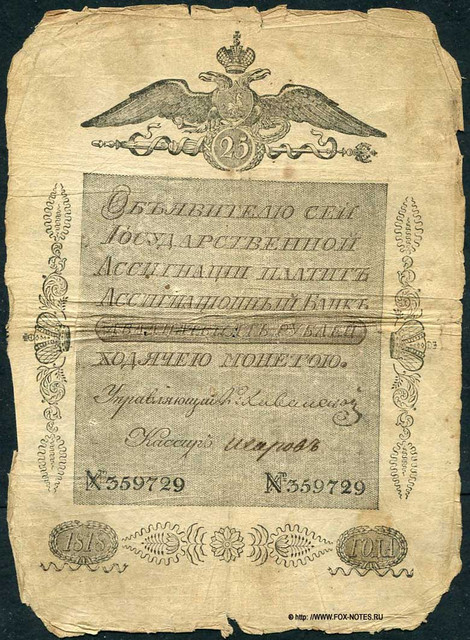 25
Объявителю сей
Государственной
Ассигнаціи платитъ
Ассигнаціонный Банкъ
двадцать пять рублей
ходячею монетою.
Управляющій
Кассиръ
№359729 №359729
1818 года
© http://WWW.FOX-NOTES.RU